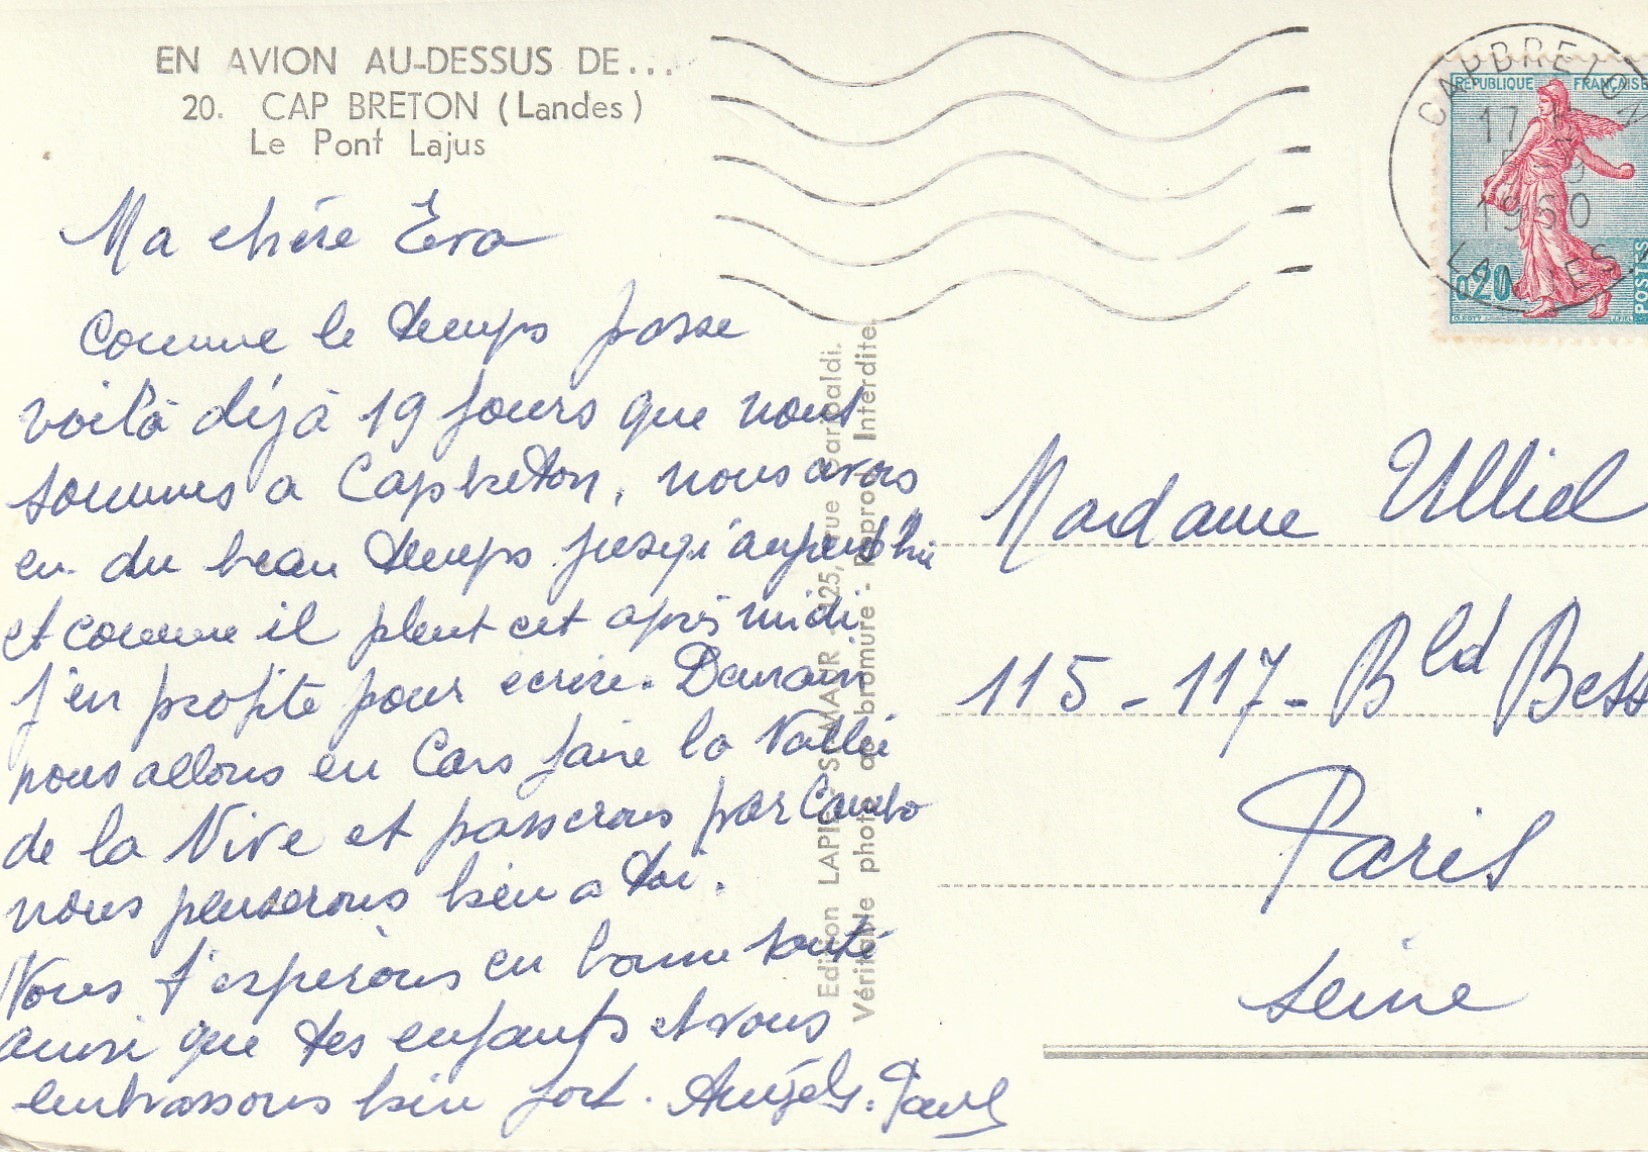 EN AVION AU-DESSUS DE...
20. CAP BRETON (Landes)
Le Pont Lajus
Ma chère Eva
Comme le temps passe
voilà déjà 19 jours que nous
sommes a Capbreton, nous avons
eu du beau temps jusqu'aujourd'hui
et comme il pleut cet après midi
j'en profite pour ecrire. Demain
nous allons en Cars faire la Vallée
de la Nive et passerons par Cambo
nous penserons bien a toi.
Nous t'esperons en bonne santé
ainsi que tes enfants et vous
embrassons bien fort. Angèle. Paul
Edition LAPIE - ST-MAUR - 125, rue Garibaldi.
Véritable photo au bromure - Reprod. Interdite.
CAPBRETON
17 H
5-9
1960
LANDES
REPUBLIQUE FRANÇAISE
0,20
POSTES
Madame Ulliel
115-117- Bld Bess
Paris
Seine